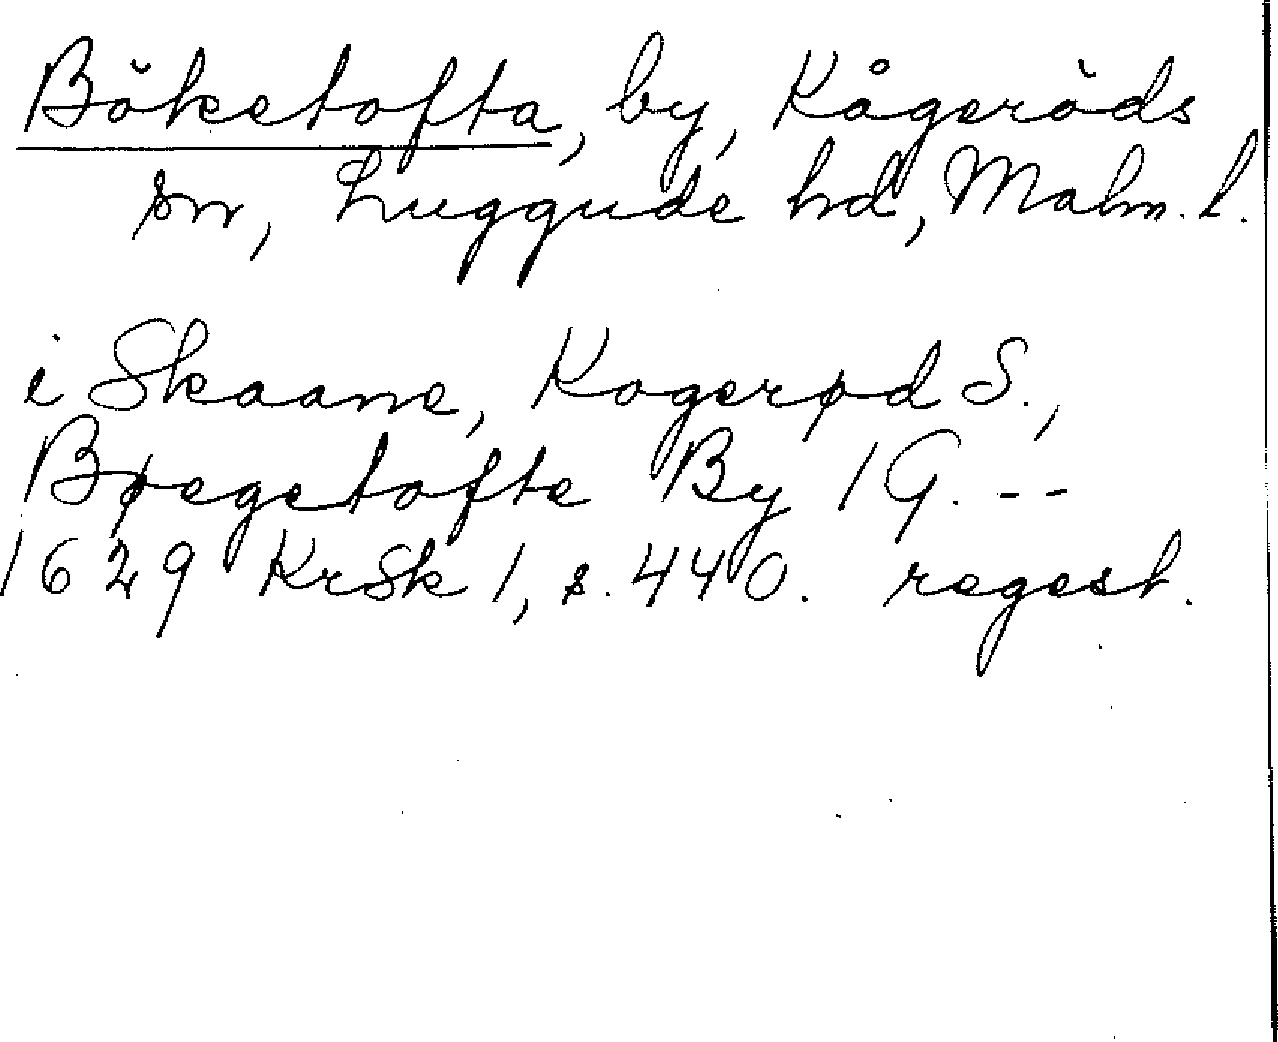 Böketofta, by, Kågeröds
sn, Luggude hd, Malm. l.
i Skaane, Kogerød S.,
Bøegetofte By 1 G. --
1629 KrSk 1, s. 440. regest.